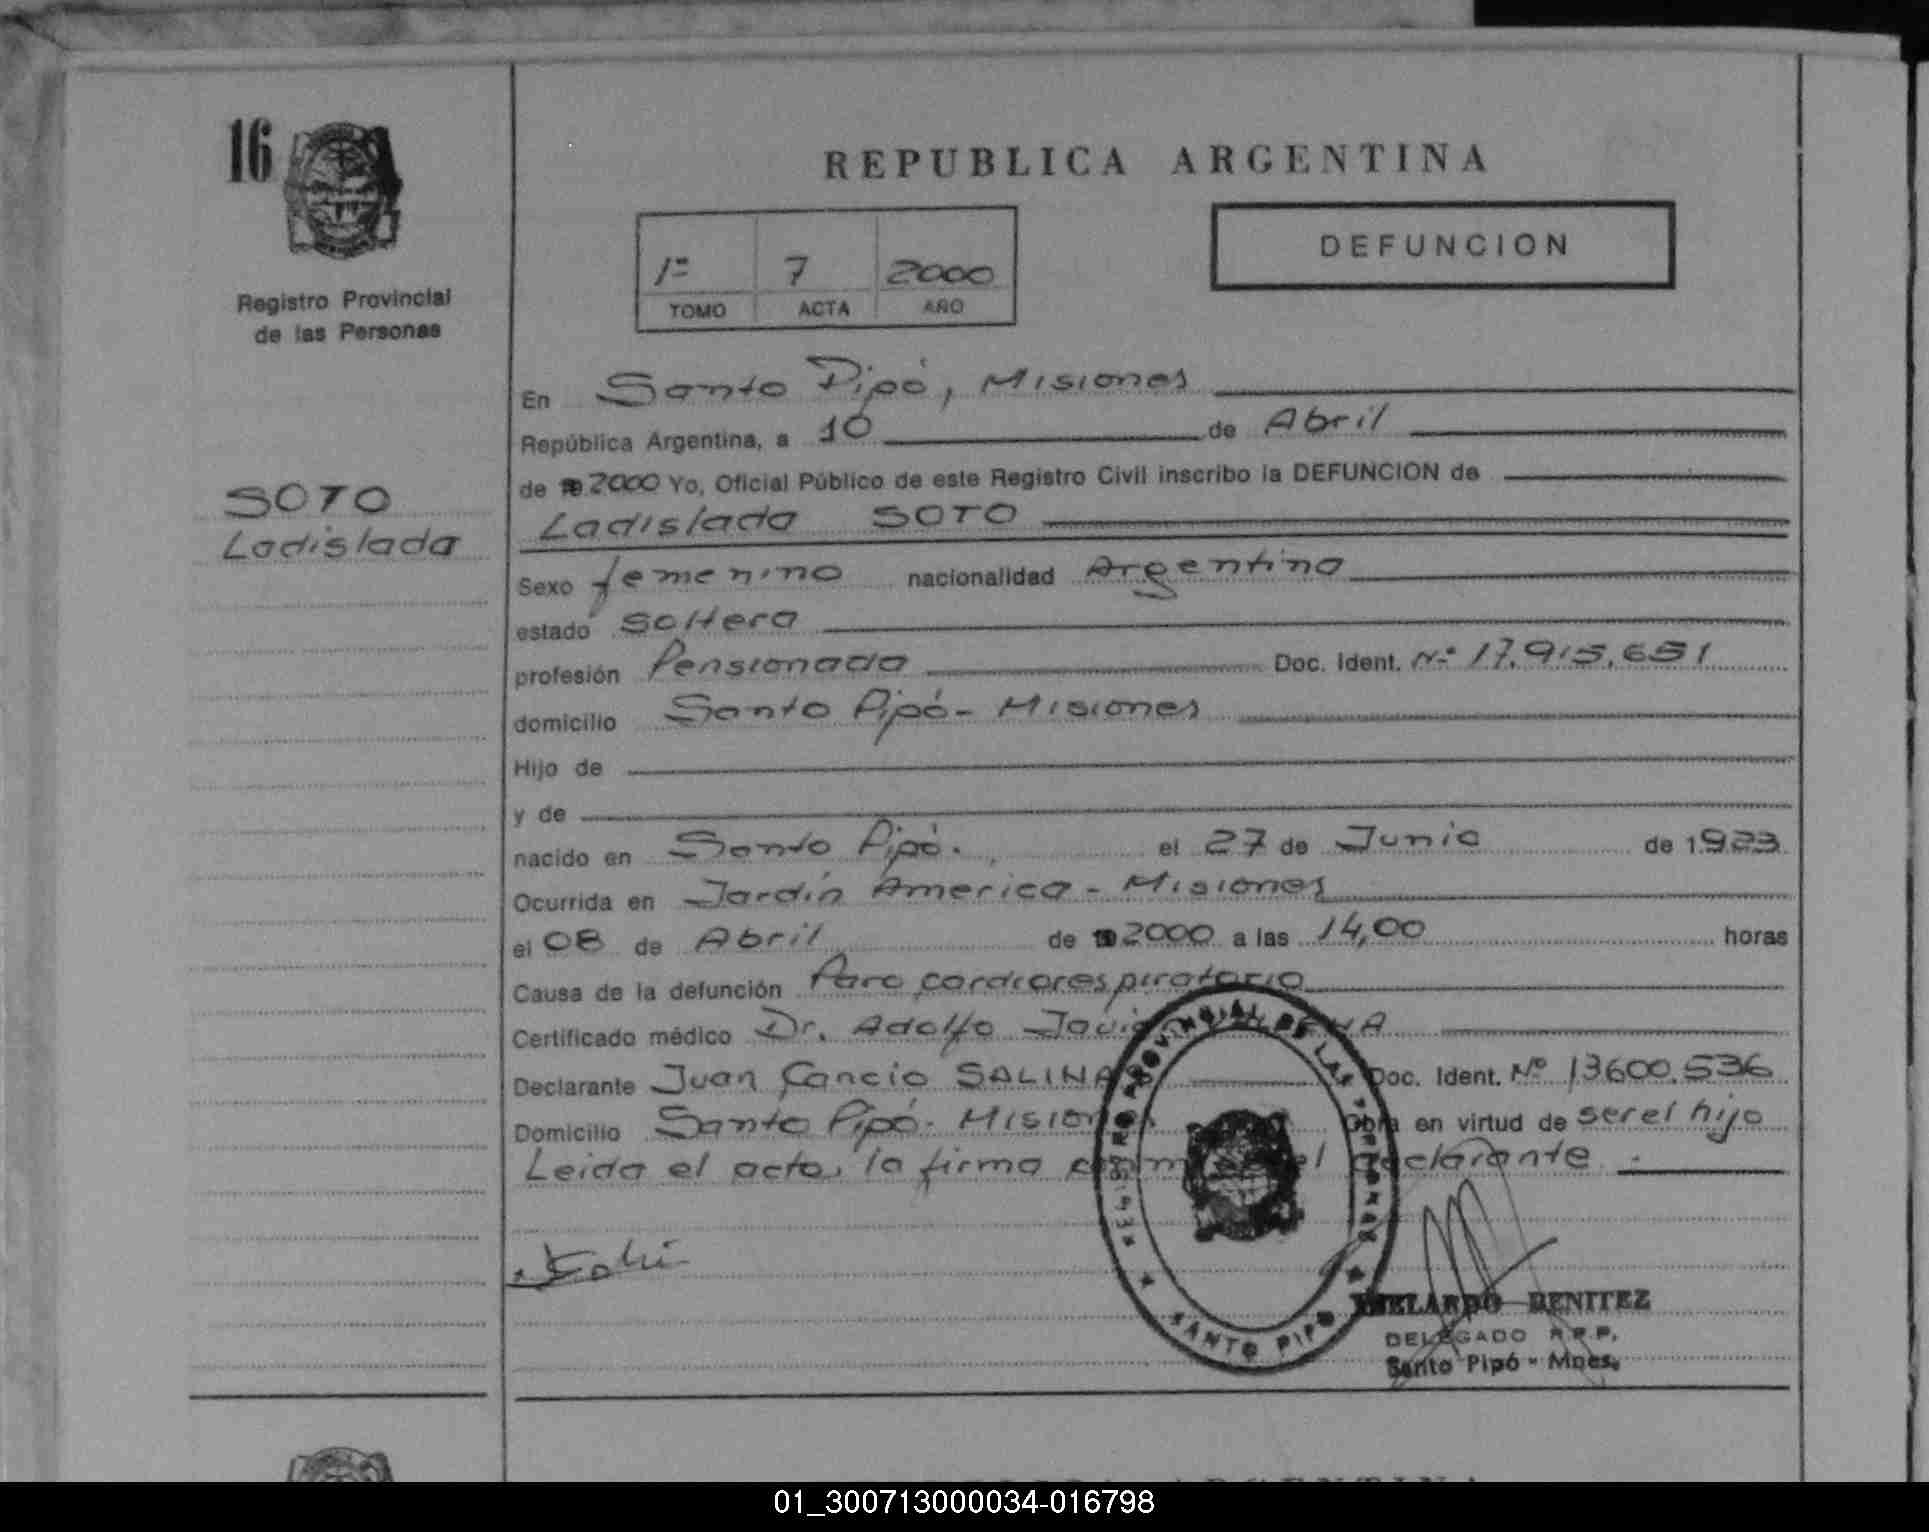 16
Registro Provincial
de las Personas
SOTO
Ladislada
REPUBLICA ARGENTINA
DEFUNCION
1º 7 2000
TOMO ACTA AÑO
En Santo Pipó, Misiones
República Argentina, a 10 de Abril
de 2000 Yo, Oficial Público de este Registro Civil inscribo la DEFUNCION de
Ladislada SOTO
Sexo femenino nacionalidad Argentina
estado soltera
profesión Pensionada Doc. Ident. Nº 17.915.651
domicilio Santo Pipó - Misiones
Hijo de
y de
nacido en Santo Pipó. el 27 de Junio de 1923
Ocurrida en Jardín America - Misiones
el 08 de Abril de 2000 a las 14,00 horas
Causa de la defunción Paro cardiorespiratorio
Certificado médico Dr. Adolfo
Declarante Juan Cancio SALINAS Doc. Ident. Nº 13600.536
Domicilio Santo Pipó - Misiones Obra en virtud de ser el hijo
Leida el acta, la firma conmigo el declarante.
REGISTRO PROVINCIAL DE LAS PERSONAS
SANTO PIPO
ABELARDO BENITEZ
DELEGADO R.P.P.
Santo Pipó - Mnes.
01_300713000034-016798